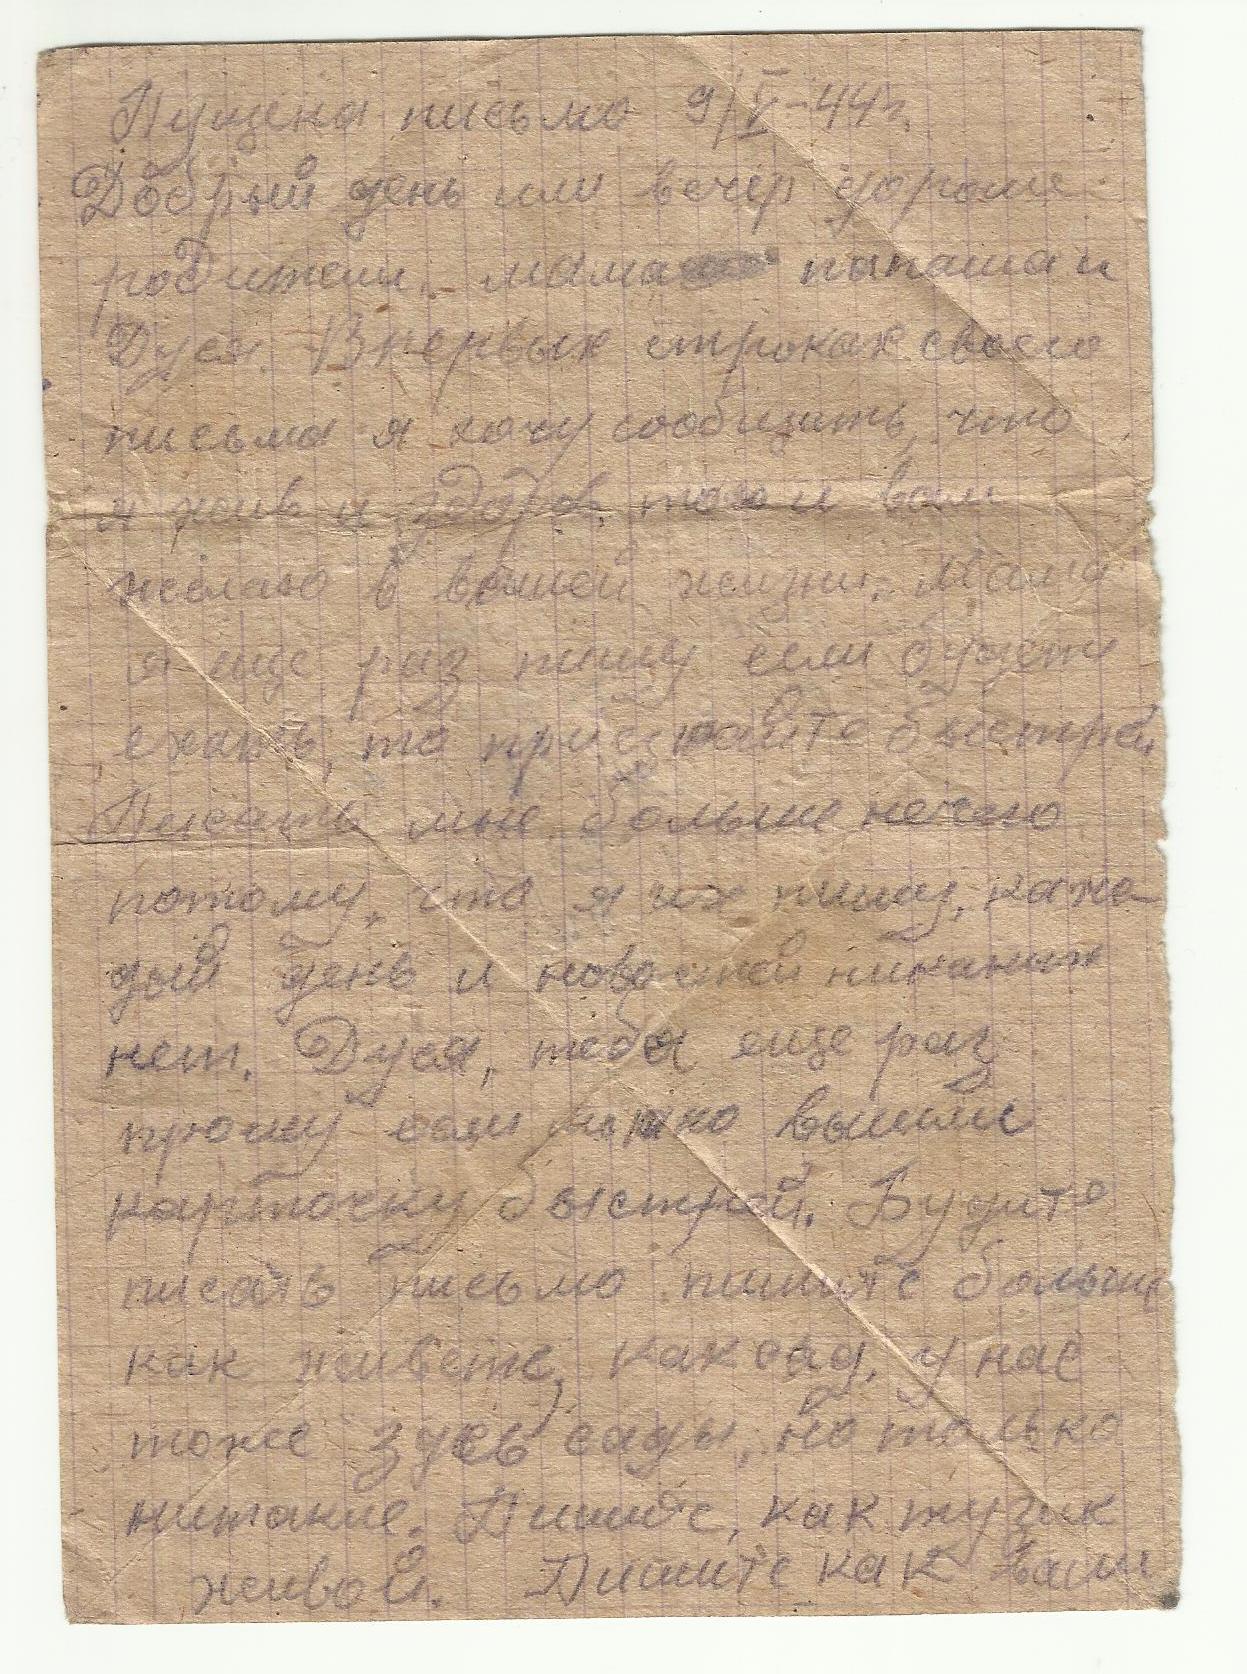 Пущена письмо 9/V-44г.
Добрый день или вечер дорогие
родители, мама папаша и
Дуся. Впервых строках своего
письма я хочу сообщить, что
я жив и здоров, того и вам
желаю в вашей жизни. Мама
я еще раз пишу если будете
ехать, то приезжайте быстрей
Писать мне больше нечего
потому, что я их пишу, каж-
дый день и новостей никаких
нет. Дуся, тебя еще раз
прошу если можно вышли
карточку быстрей. Будите
писать письмо пишите больше
как живете, как сад, у нас
тоже здесь сады, но только
нитакие. Пишите, как тузик
живой. Пишите как ваши